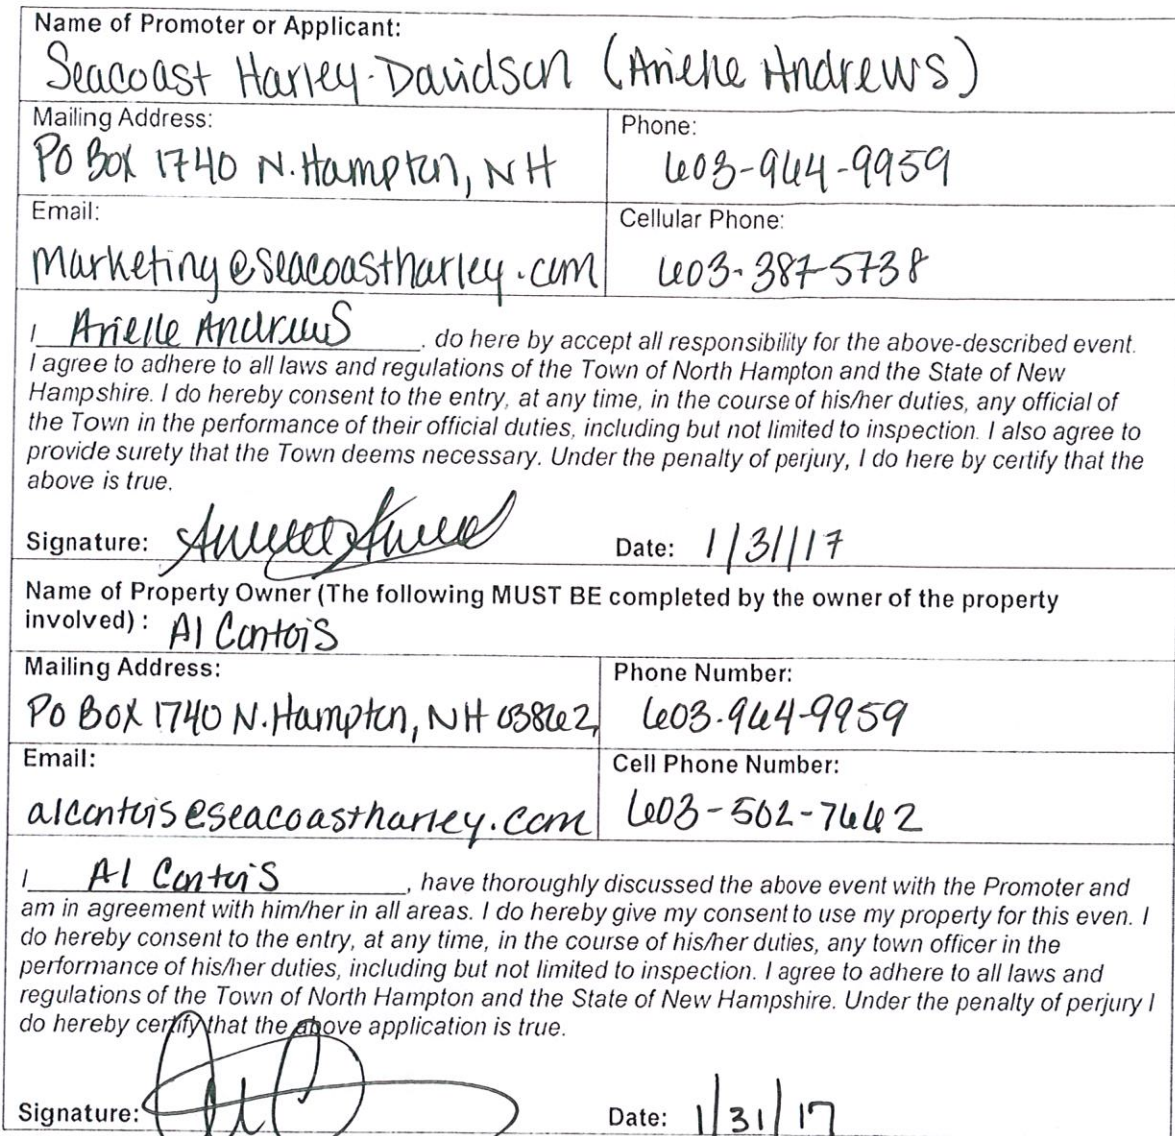 Name of Promoter or Applicant:
Seacoast Harley-Davidson (Arielle Andrews)
Mailing Address:
PO Box 1740 N. Hampton, NH
Phone:
603-964-9959
Email:
marketing@seacoastharley.com
Cellular Phone:
603-387-5738
I Arielle Andrews, do here by accept all responsibility for the above-described event.
I agree to adhere to all laws and regulations of the Town of North Hampton and the State of New
Hampshire. I do hereby consent to the entry, at any time, in the course of his/her duties, any official of
the Town in the performance of their official duties, including but not limited to inspection. I also agree to
provide surety that the Town deems necessary. Under the penalty of perjury, I do here by certify that the
above is true.
Signature: Date: 1/31/17
Name of Property Owner (The following MUST BE completed by the owner of the property
involved) : Al Contois
Mailing Address:
PO Box 1740 N. Hampton, NH 03862
Phone Number:
603.964-9959
Email:
alcontois@seacoastharley.com
Cell Phone Number:
603-502-7662
I Al Contois, have thoroughly discussed the above event with the Promoter and
am in agreement with him/her in all areas. I do hereby give my consent to use my property for this even. I
do hereby consent to the entry, at any time, in the course of his/her duties, any town officer in the
performance of his/her duties, including but not limited to inspection. I agree to adhere to all laws and
regulations of the Town of North Hampton and the State of New Hampshire. Under the penalty of perjury I
do hereby certify that the above application is true.
Signature: Date: 1/31/17